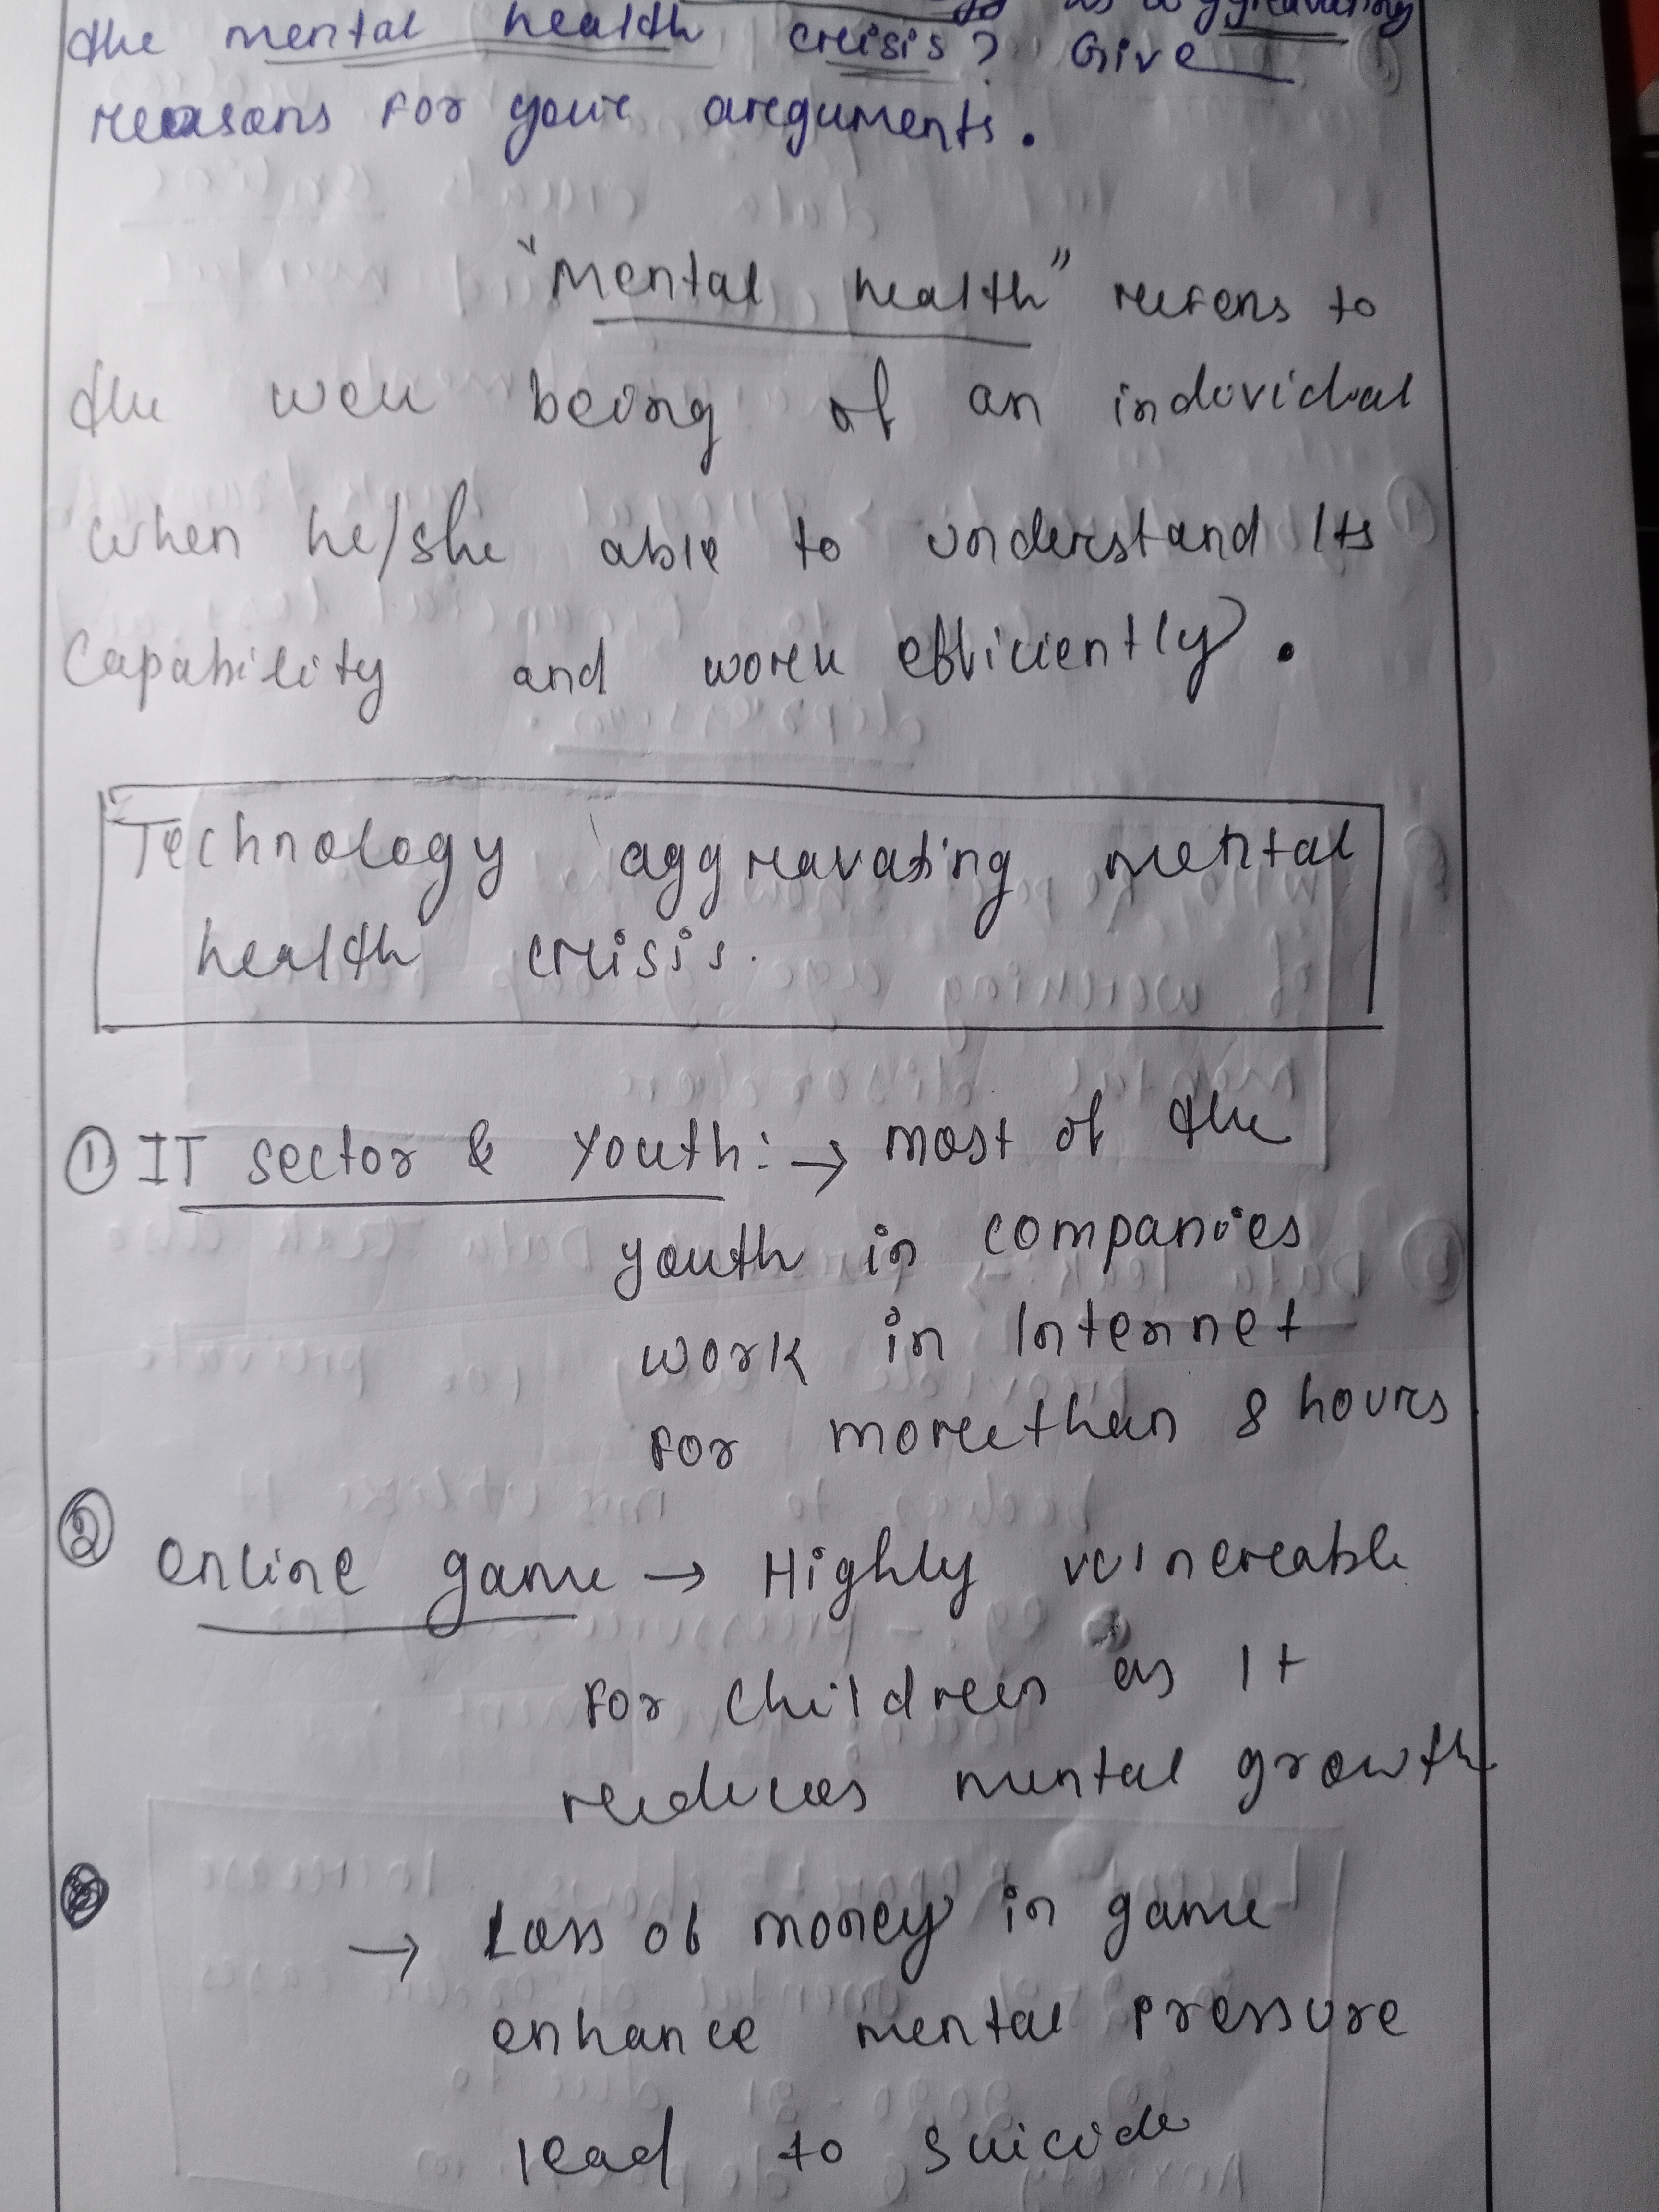 as aggravating
the mental health crisis? Give
reasons for your arguments.
"Mental health" refers to
the well being of an individual
when he/she able to understand Its
Capability and work efficiently.
Technology aggravating mental
health crisis.
① IT sector & Youth:→ most of the
youth in companies
work in Internet
for morethan 8 hours
② Online game → Highly vulnerable
for children as It
reduces mental growth
→ Loss of money in game
enhance mental pressure
lead to suicide